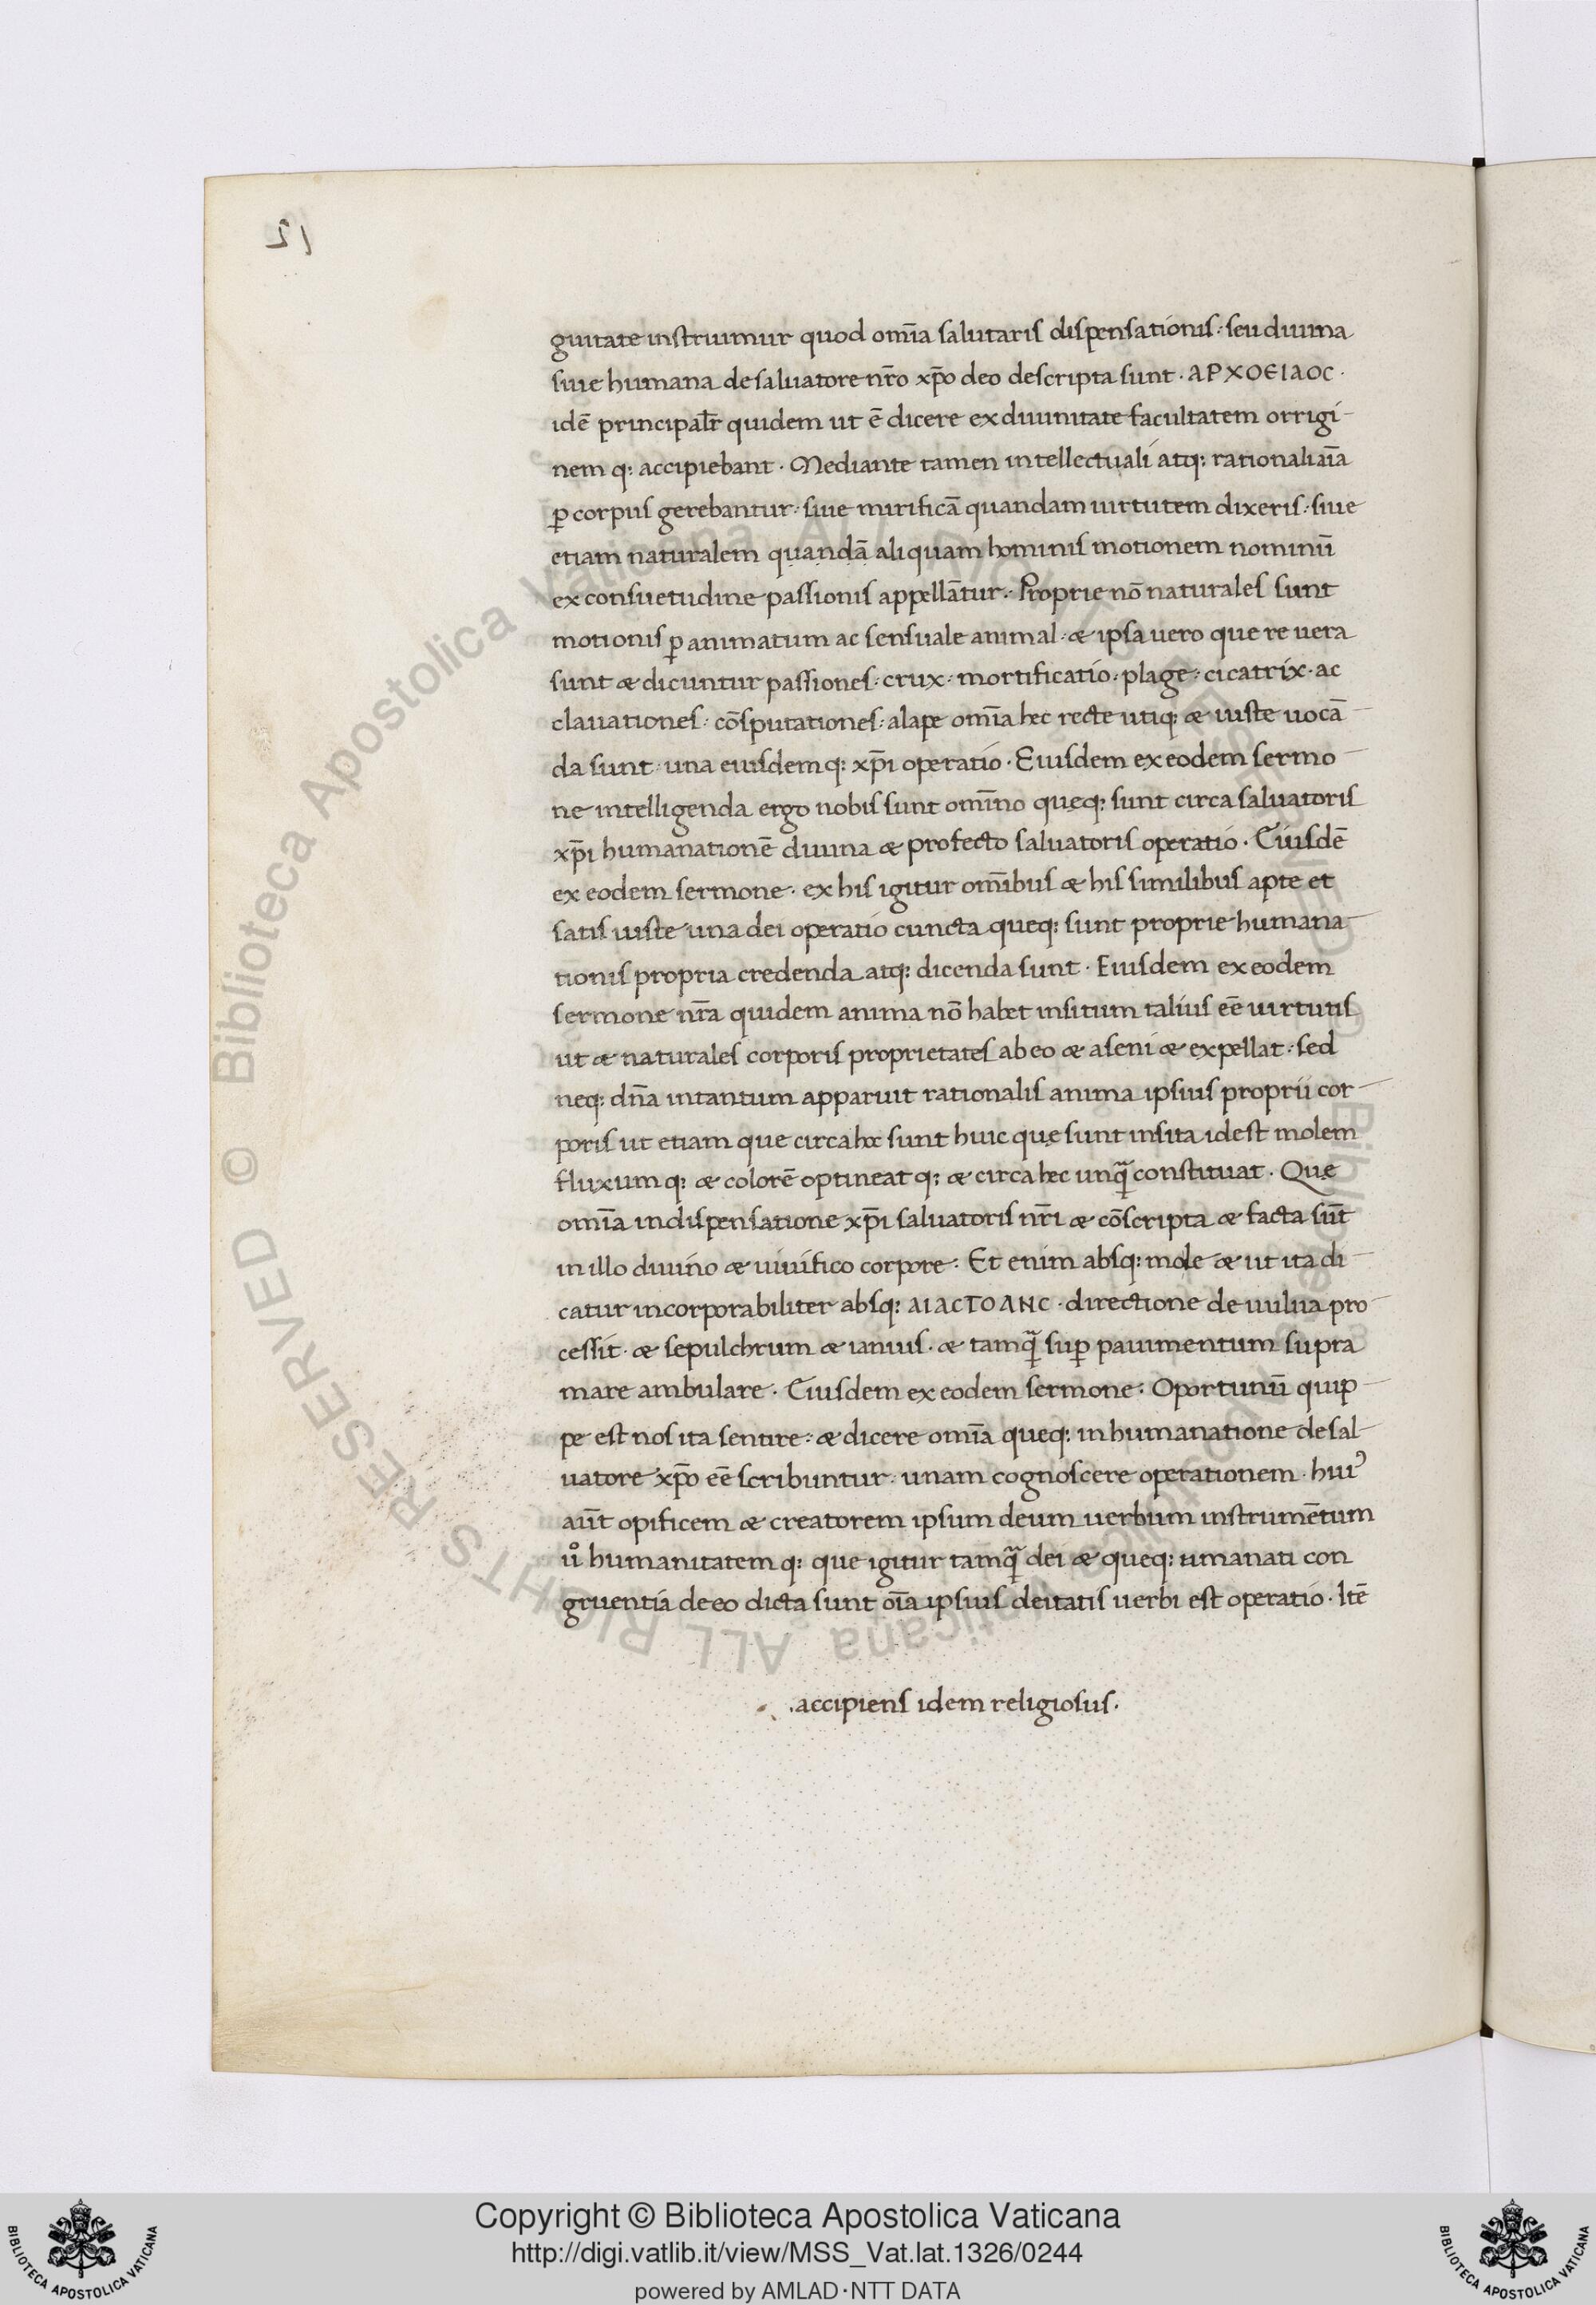 guitate instruimur quod om̅ia salutaris dispensationis : seu diuina
siue humana de saluatore nr̅o xp̅o deo descripta sunt · ΑΡΧΟΕΙΛΟC ·
idē principalr̅ quidem ut ē dicere ex diuinitate facultatem orrigi-
nem q: accipiebant · Mediante tamen intellectuali atq: rationali aīa
ꝑ corpus gerebantur : siue mirificā quandam uirtutem dixeris : siue
etiam naturalem quandā aliquam hominis motionem nominū
ex consuetudine passionis appellātur : Proprie nō naturales sunt
motionis ꝑ animatum ac sensuale animal · æ ipsa uero que re uera
sunt æ dicuntur passiones : crux · mortificatio : plage : cicatrix · ac
clauationes : cōsputationes : alape om̅ia hec recte utiq: æ iuste uocā-
da sunt · una eiusdemq: xp̅i operatio · Eiusdem ex eodem sermo-
ne intelligenda ergo nobis sunt om̅ino queq: sunt circa saluatoris
xp̅i humanationē diuina æ profecto saluatoris operatio · Eiusdē
ex eodem sermone · ex his igitur om̅ibus æ his similibus apte et
satis iuste una dei operatio cuncta queq: sunt proprie humana-
tionis propria credenda atq: dicenda sunt · Eiusdem ex eodem
sermone nr̅a quidem anima nō habet insitum talius eē uirtutis
ut æ naturales corporis proprietates ab eo æ aseni æ expellat : sed
neq: dn̅a intantum apparuit rationalis anima ipsius proprii cor-
poris ut etiam que circa hoc sunt huic que sunt insita idest molem
fluxum q: æ colorē optineat q: æ circa hec unqᷓ constituat · Que
om̅ia in dispensatione xp̅i saluatoris nr̅i æ cōscripta æ facta sūt
in illo diuino æ uiuifico corpore : Et enim absq: mole æ ut ita di-
catur incorporabiliter absq: ΑΙΑCΤΟΛΝC · directione de uulua pro-
cessit · æ sepulchrum æ ianuis · æ tamqᷓ suꝑ pauimentum supra
mare ambulare · Eiusdem ex eodem sermone : Oportunū quip-
pe est nos ita sentire : æ dicere om̅ia queq: in humanatione de sal-
uatore xp̅o eē scribuntur : unam cognoscere operationem · huiꝰ
aūt opificem æ creatorem ipsum deum uerbum instrumētum
uͦ humanitatem q: que igitur tamqᷓ dei æ queq: umanati con
gruentia de eo dicta sunt oīa ipsius deitatis uerbi est operatio · Itē
· accipiens idem religiosus ·
Copyright © Biblioteca Apostolica Vaticana
http://digi.vatlib.it/view/MSS_Vat.lat.1326/0244
powered by AMLAD·NTT DATA
BIBLIOTECA APOSTOLICA VATICANA
BIBLIOTECA APOSTOLICA VATICANA
© Biblioteca Apostolica Vaticana ALL RIGHTS RESERVED
© Biblioteca Apostolica Vaticana ALL RIGHTS RESERVED